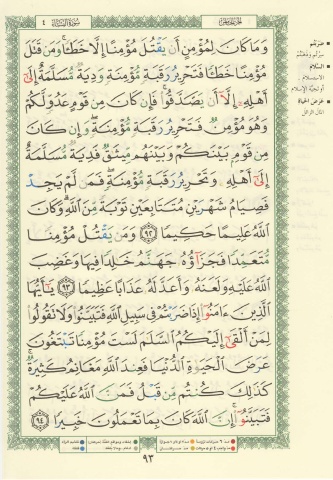 سورة النساء ٤
وَمَا كَانَ لِمُؤْمِنٍ أَن يَقْتُلَ مُؤْمِنًا إِلَّا خَطَـًٔا وَمَن قَتَلَ
مُؤْمِنًا خَطَـًٔا فَتَحْرِيرُ رَقَبَةٍ مُّؤْمِنَةٍ وَدِيَةٌ مُّسَلَّمَةٌ إِلَىٰٓ
أَهْلِهِۦٓ إِلَّآ أَن يَصَّدَّقُوا۟ فَإِن كَانَ مِن قَوْمٍ عَدُوٍّ لَّكُمْ
وَهُوَ مُؤْمِنٌ فَتَحْرِيرُ رَقَبَةٍ مُّؤْمِنَةٍ وَإِن كَانَ
مِن قَوْمٍۭ بَيْنَكُمْ وَبَيْنَهُم مِّيثَٰقٌ فَدِيَةٌ مُّسَلَّمَةٌ
إِلَىٰٓ أَهْلِهِۦ وَتَحْرِيرُ رَقَبَةٍ مُّؤْمِنَةٍ فَمَن لَّمْ يَجِدْ
فَصِيَامُ شَهْرَيْنِ مُتَتَابِعَيْنِ تَوْبَةً مِّنَ ٱللَّهِ وَكَانَ
ٱللَّهُ عَلِيمًا حَكِيمًا ٩٢ وَمَن يَقْتُلْ مُؤْمِنًا
مُّتَعَمِّدًا فَجَزَآؤُهُۥ جَهَنَّمُ خَٰلِدًا فِيهَا وَغَضِبَ
ٱللَّهُ عَلَيْهِ وَلَعَنَهُۥ وَأَعَدَّ لَهُۥ عَذَابًا عَظِيمًا ٩٣ يَٰٓأَيُّهَا
ٱلَّذِينَ ءَامَنُوٓا۟ إِذَا ضَرَبْتُمْ فِى سَبِيلِ ٱللَّهِ فَتَبَيَّنُوا۟ وَلَا تَقُولُوا۟
لِمَنْ أَلْقَىٰٓ إِلَيْكُمُ ٱلسَّلَٰمَ لَسْتَ مُؤْمِنًا تَبْتَغُونَ
عَرَضَ ٱلْحَيَوٰةِ ٱلدُّنْيَا فَعِندَ ٱللَّهِ مَغَانِمُ كَثِيرَةٌ
كَذَٰلِكَ كُنتُم مِّن قَبْلُ فَمَنَّ ٱللَّهُ عَلَيْكُمْ
فَتَبَيَّنُوٓا۟ إِنَّ ٱللَّهَ كَانَ بِمَا تَعْمَلُونَ خَبِيرًا ٩٤
ضربتم
السلام
الاستسلام
عرض الحياة
٩٣